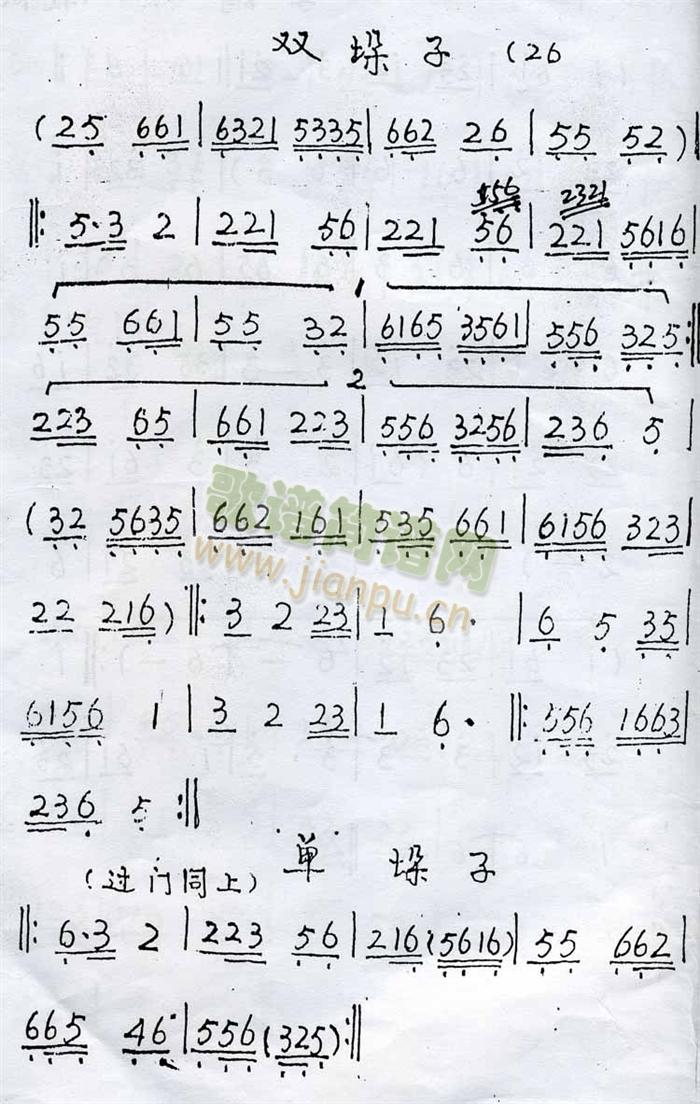 双垛子 (26
(25 661 | 6321 5335 | 662 26 | 55 52)
156 2321
‖: 5·3 2 | 221 56 | 221 56 | 221 5616 |
1
55 661 | 55 32 | 6165 3561 | 556 325 :‖
2
223 65 | 661 223 | 556 3256 | 236 5 |
(32 5635 | 662 161 | 535 661 | 6156 323 |
歌谱简谱网
www.jianpu.cn
22 216) ‖: 3 2 23 | 1 6· | 6 5 35 |
6156 1 | 3 2 23 | 1 6· ‖: 556 1663 |
236 5 :‖
单垛子
(过门同上)
‖: 6·3 2 | 223 56 | 216 (5616) | 55 662 |
665 46 | 556 (325) :‖